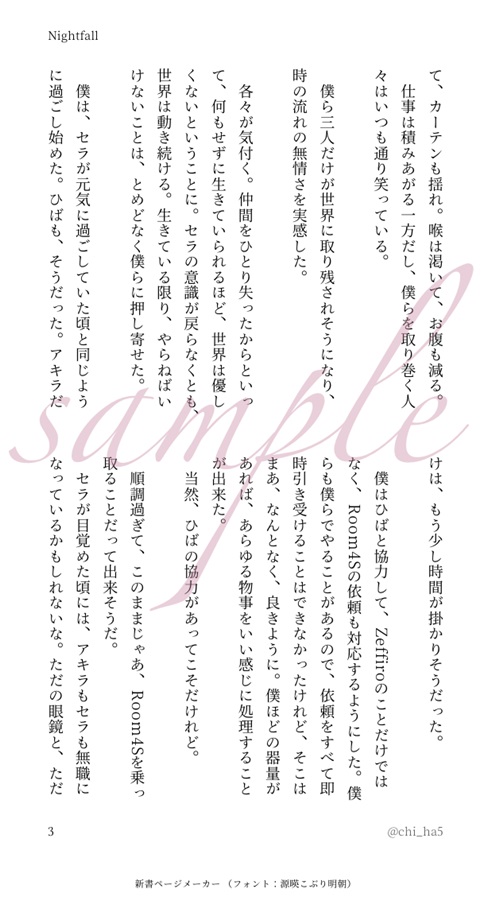 Nightfall
て、カーテンも揺れ。喉は渇いて、お腹も減る。
仕事は積みあがる一方だし、僕らを取り巻く人
々はいつも通り笑っている。
僕ら三人だけが世界に取り残されそうになり、
時の流れの無情さを実感した。
各々が気付く。仲間をひとり失ったからといっ
て、何もせずに生きていられるほど、世界は優し
くないということに。セラの意識が戻らなくとも、
世界は動き続ける。生きている限り、やらねばい
けないことは、とめどなく僕らに押し寄せた。
僕は、セラが元気に過ごしていた頃と同じよう
に過ごし始めた。ひばも、そうだった。アキラだ
けは、もう少し時間が掛かりそうだった。
僕はひばと協力して、Zeffiroのことだけでは
なく、Room4Sの依頼も対応するようにした。僕
らも僕らでやることがあるので、依頼をすべて即
時引き受けることはできなかったけれど、そこは
まあ、なんとなく、良きように。僕ほどの器量が
あれば、あらゆる物事をいい感じに処理すること
が出来た。
当然、ひばの協力があってこそだけれど。
順調過ぎて、このままじゃあ、Room4Sを乗っ
取ることだって出来そうだ。
セラが目覚めた頃には、アキラもセラも無職に
なっているかもしれないな。ただの眼鏡と、ただ
sample
3
@chi_ha5
新書ページメーカー（フォント：源暎こぶり明朝）